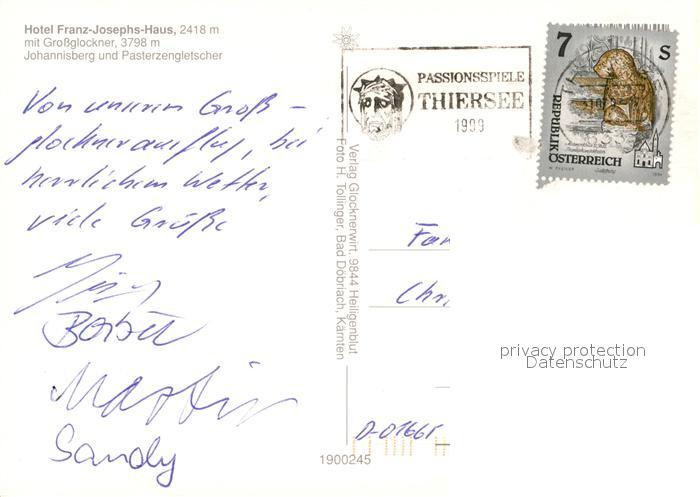 Hotel Franz-Josephs-Haus, 2418 m
mit Großglockner, 3798 m
Johannisberg und Pasterzengletscher
Von unserem Groß-
glocknerausflug, bei
herrlichem Wetter,
viele Grüße
Martin
Sandy
Verlag Glocknerwirt. 9844 Heiligenblut
Foto H. Tollinger, Bad Döbriach, Kärnten
1900245
PASSIONSSPIELE
THIERSEE
1999
7 S
REPUBLIK
ÖSTERREICH
Fam
Chr.
D-01665
privacy protection
Datenschutz